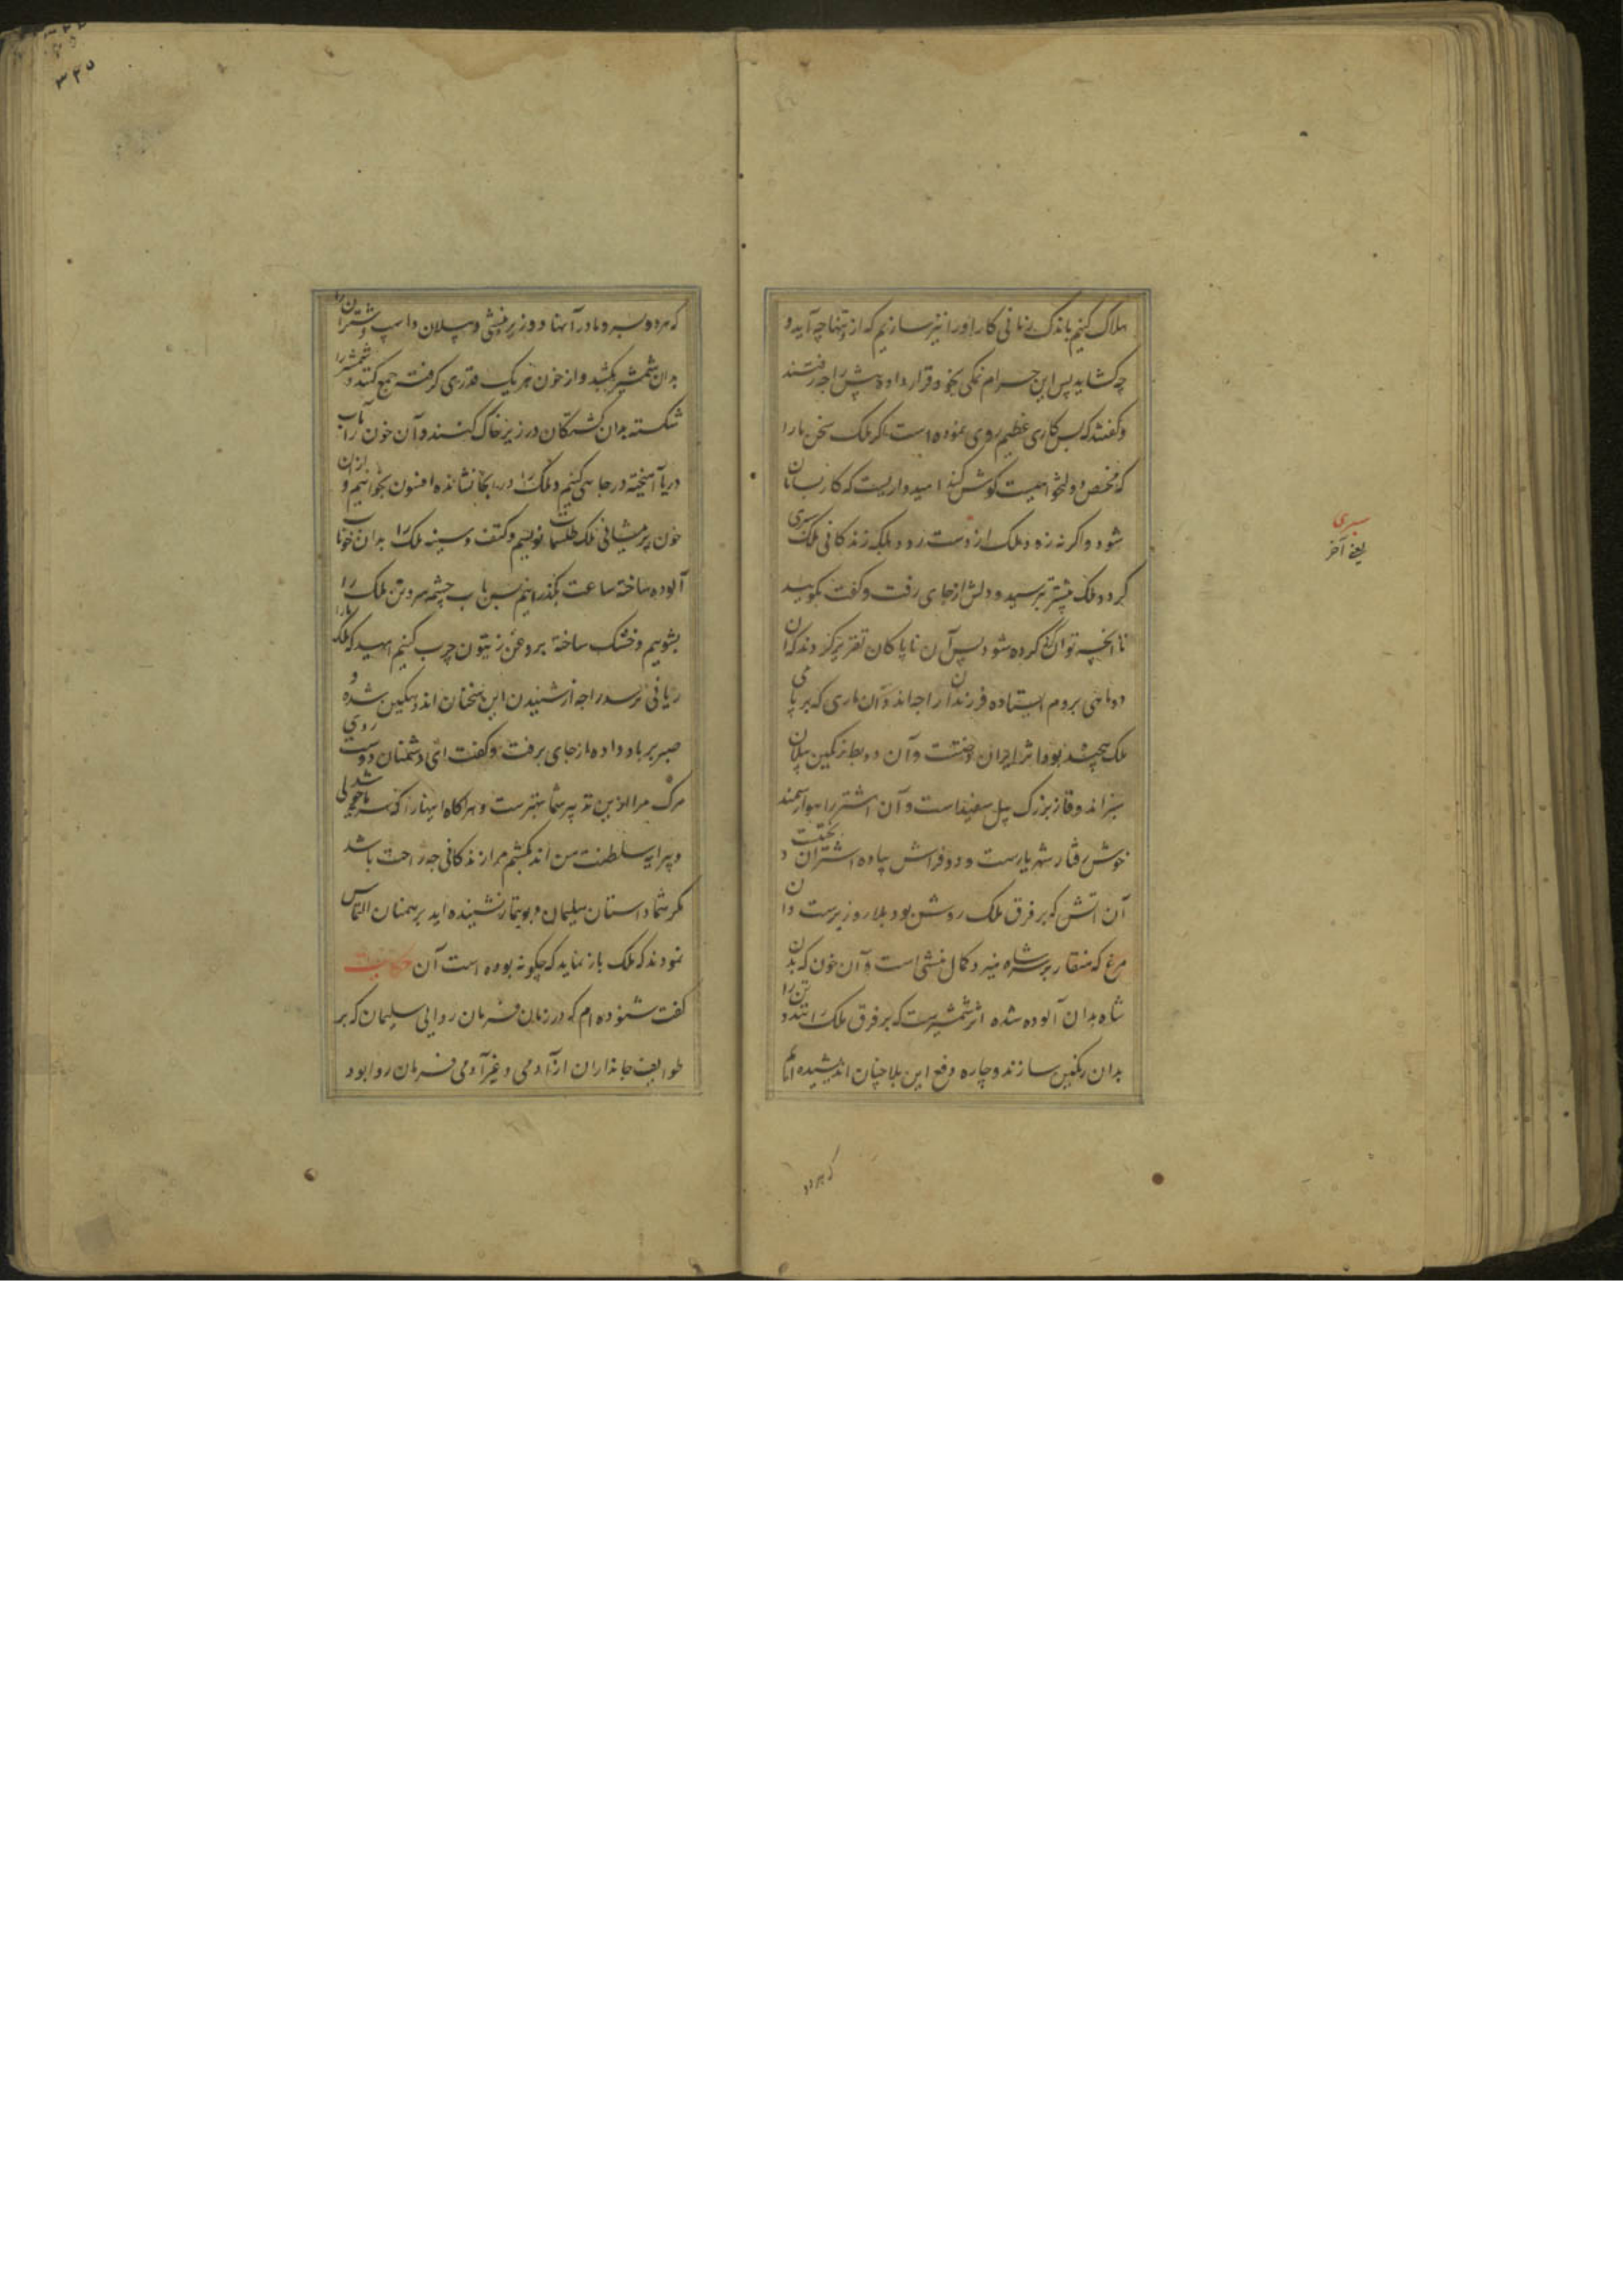 هلاک کنیم باندک زمانی کار اورا نیز سازیم که از تنها چه آید و
چه کشاید پس این حرام نمکی بخود قرار داده پیش راجه رفتند
و گفتند که بس کاری عظیم روی نموده است اگر ملک سخن ما را
که مخلص و دولتخواهیست گوش کند امیدواریست که کار بسامان
شود و اگر نه زود ملک از دست رود بلکه زندگانی ملک سپری
گردد ملک بیشتر بترسید و دلش از جای رفت و گفت بگویید
تا آنچه توان کرد کرده شود پس آن ناپاکان تقریر کردند که آن
دو ماهی بر دم ایستاده فرزندان راجه اند و آن ماری که بر پای
ملک پیچیده بود مادر ایران دخت است و آن دو بط رنگین پیلان
سبز اند و قاز بزرک پیل سفید است و آن اشتر راهوار سمند
خوش رفتار شهریارست و دو فراش پیاده اشتران بختیست و
آن آتش که بر فرق ملک روشن بود بلار وزیرست و آن
مرغ که منقار بر سر شاه میزد کمال منشی است و آن خون که بدن
شاه بدان آلوده شده اثر شمشیرست که بر فرق ملک رانند و تن را
بدان رنگین سازند و چاره دفع این بلا چنان اندیشیده ایم
که هر دو
سپری
یعنی آخر
۳۲۵
که هر دو پسر و مادر آنها و وزیر و منشی و پیلان و اسپ و شتران را
بدان شمشیر بکشید و از خون هر یک قدری گرفته جمع کنید و شمشیر را
شکسته بدان کشتگان در زیر خاک کنند و آن خون را با آب
دریا آمیخته در جاهی کنیم و ملک را در انجا نشانده افسون بخوانیم و ازان
خون بر پیشانی ملک طلسمات نویسیم و کتف و سینه ملک را بدان خوناب
آلوده ساخته ساعت بگذرانیم پس بآب چشمه سر و تن ملک را
بشوییم و خشک ساخته بروغن زیتون چرب کنیم امید که ملک را
زیانی نرسد راجه از شنیدن این سخنان اندوهگین شده و
صبر بر باد داده از جای برفت و گفت ای دشمنان دوست روی
مرک مرا ازین تدبیر شما بهترست و هرگاه اینها را که
و پیرایه سلطنت من اند بکشم مرا از زندگانی چه راحت باشد
مگر شما داستان سلیمان و بوتیمار نشنیده اید برهمنان التماس
نمودند که ملک باز نماید که چگونه بوده است آن حکایت
گفت شنوده ام که در زمان فرمان روایی سلیمان که بر
طوایف جانداران از آدمی و غیر آدمی فرمان روا بود